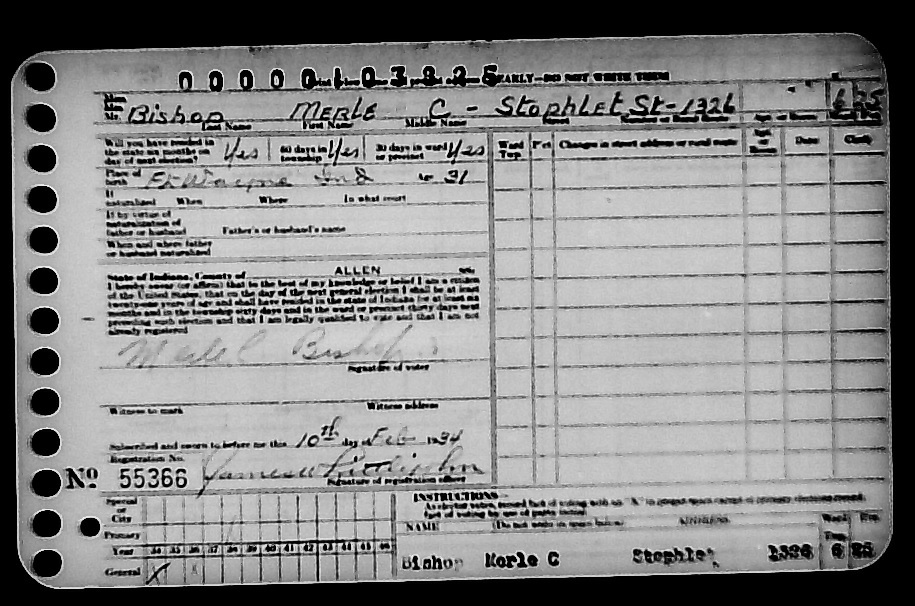 0 0 0 0 0 1 0 3 9 2 5 EARLY—DO NOT WRITE THEM
Mr. Bishop MERLE C - Stophlet St-1326 6 25
Last Name First Name Middle Name
Will you have resided in the state six months on day of next election? Yes 60 days in township Yes 30 days in ward or precinct Yes
Ward Twp. Pct Changes in street address or rural route Date Clerk
Place of birth Ft Wayne Ind Age 31
If naturalized When Where In what court
If by virtue of naturalization of father or husband Father's or husband's name
When and where father or husband naturalized
State of Indiana, County of ALLEN ss:
I hereby swear (or affirm) that to the best of my knowledge or belief I am a citizen
of the United States, that on the day of the next general election I shall be at least
twenty-one years of age and shall have resided in the state of Indiana for at least six
months and in the township sixty days and in the ward or precinct thirty days next
preceding such election and that I am legally qualified to vote and that I am not
already registered
Merle C Bishop
Signature of voter
Witness to mark Witness address
Subscribed and sworn to before me this 10th day of Feb 1934
Registration No.
No 55366
Signature of registration officer
Special or City
Primary
Year 34 35 36 37 38 39 40 41 42 43 44 45 46
General X
INSTRUCTIONS—
NAME (Do not write in space below) ADDRESS Ward Twp. Pre.
Bishop Merle C Stophlet 1326 6 25